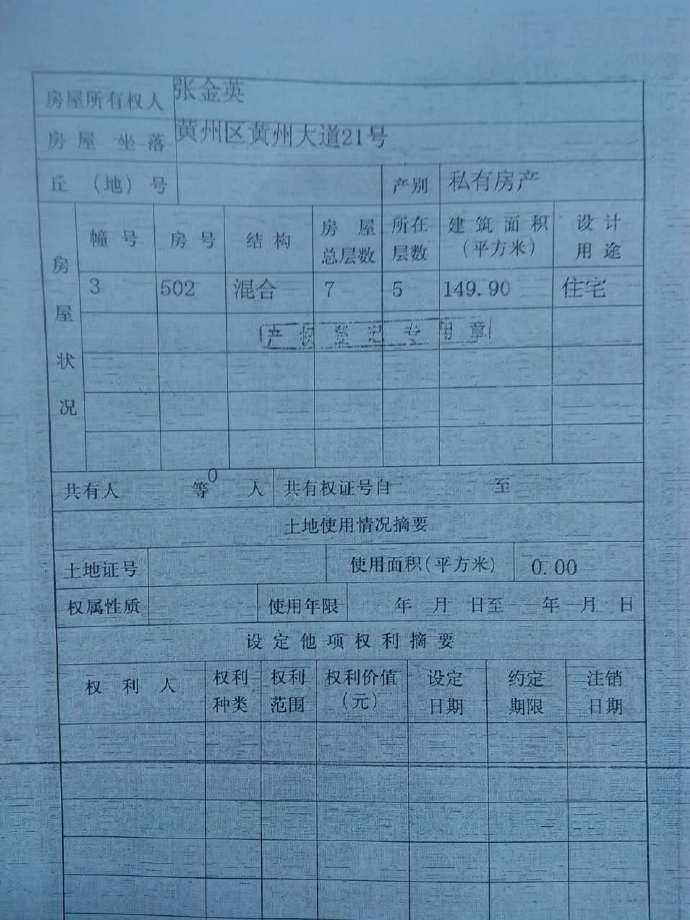 房屋所有权人 张金英
房屋坐落 黄州区黄州大道21号
丘（地）号 产别 私有房产
房屋状况
幢号 房号 结构 房屋总层数 所在层数 建筑面积（平方米） 设计用途
3 502 混合 7 5 149.90 住宅
产权登记专用章
共有人 等0人 共有权证号自 至
土地使用情况摘要
土地证号 使用面积(平方米) 0.00
权属性质 使用年限 年 月 日至 年 月 日
设定他项权利摘要
权利人 权利种类 权利范围 权利价值（元） 设定日期 约定期限 注销日期